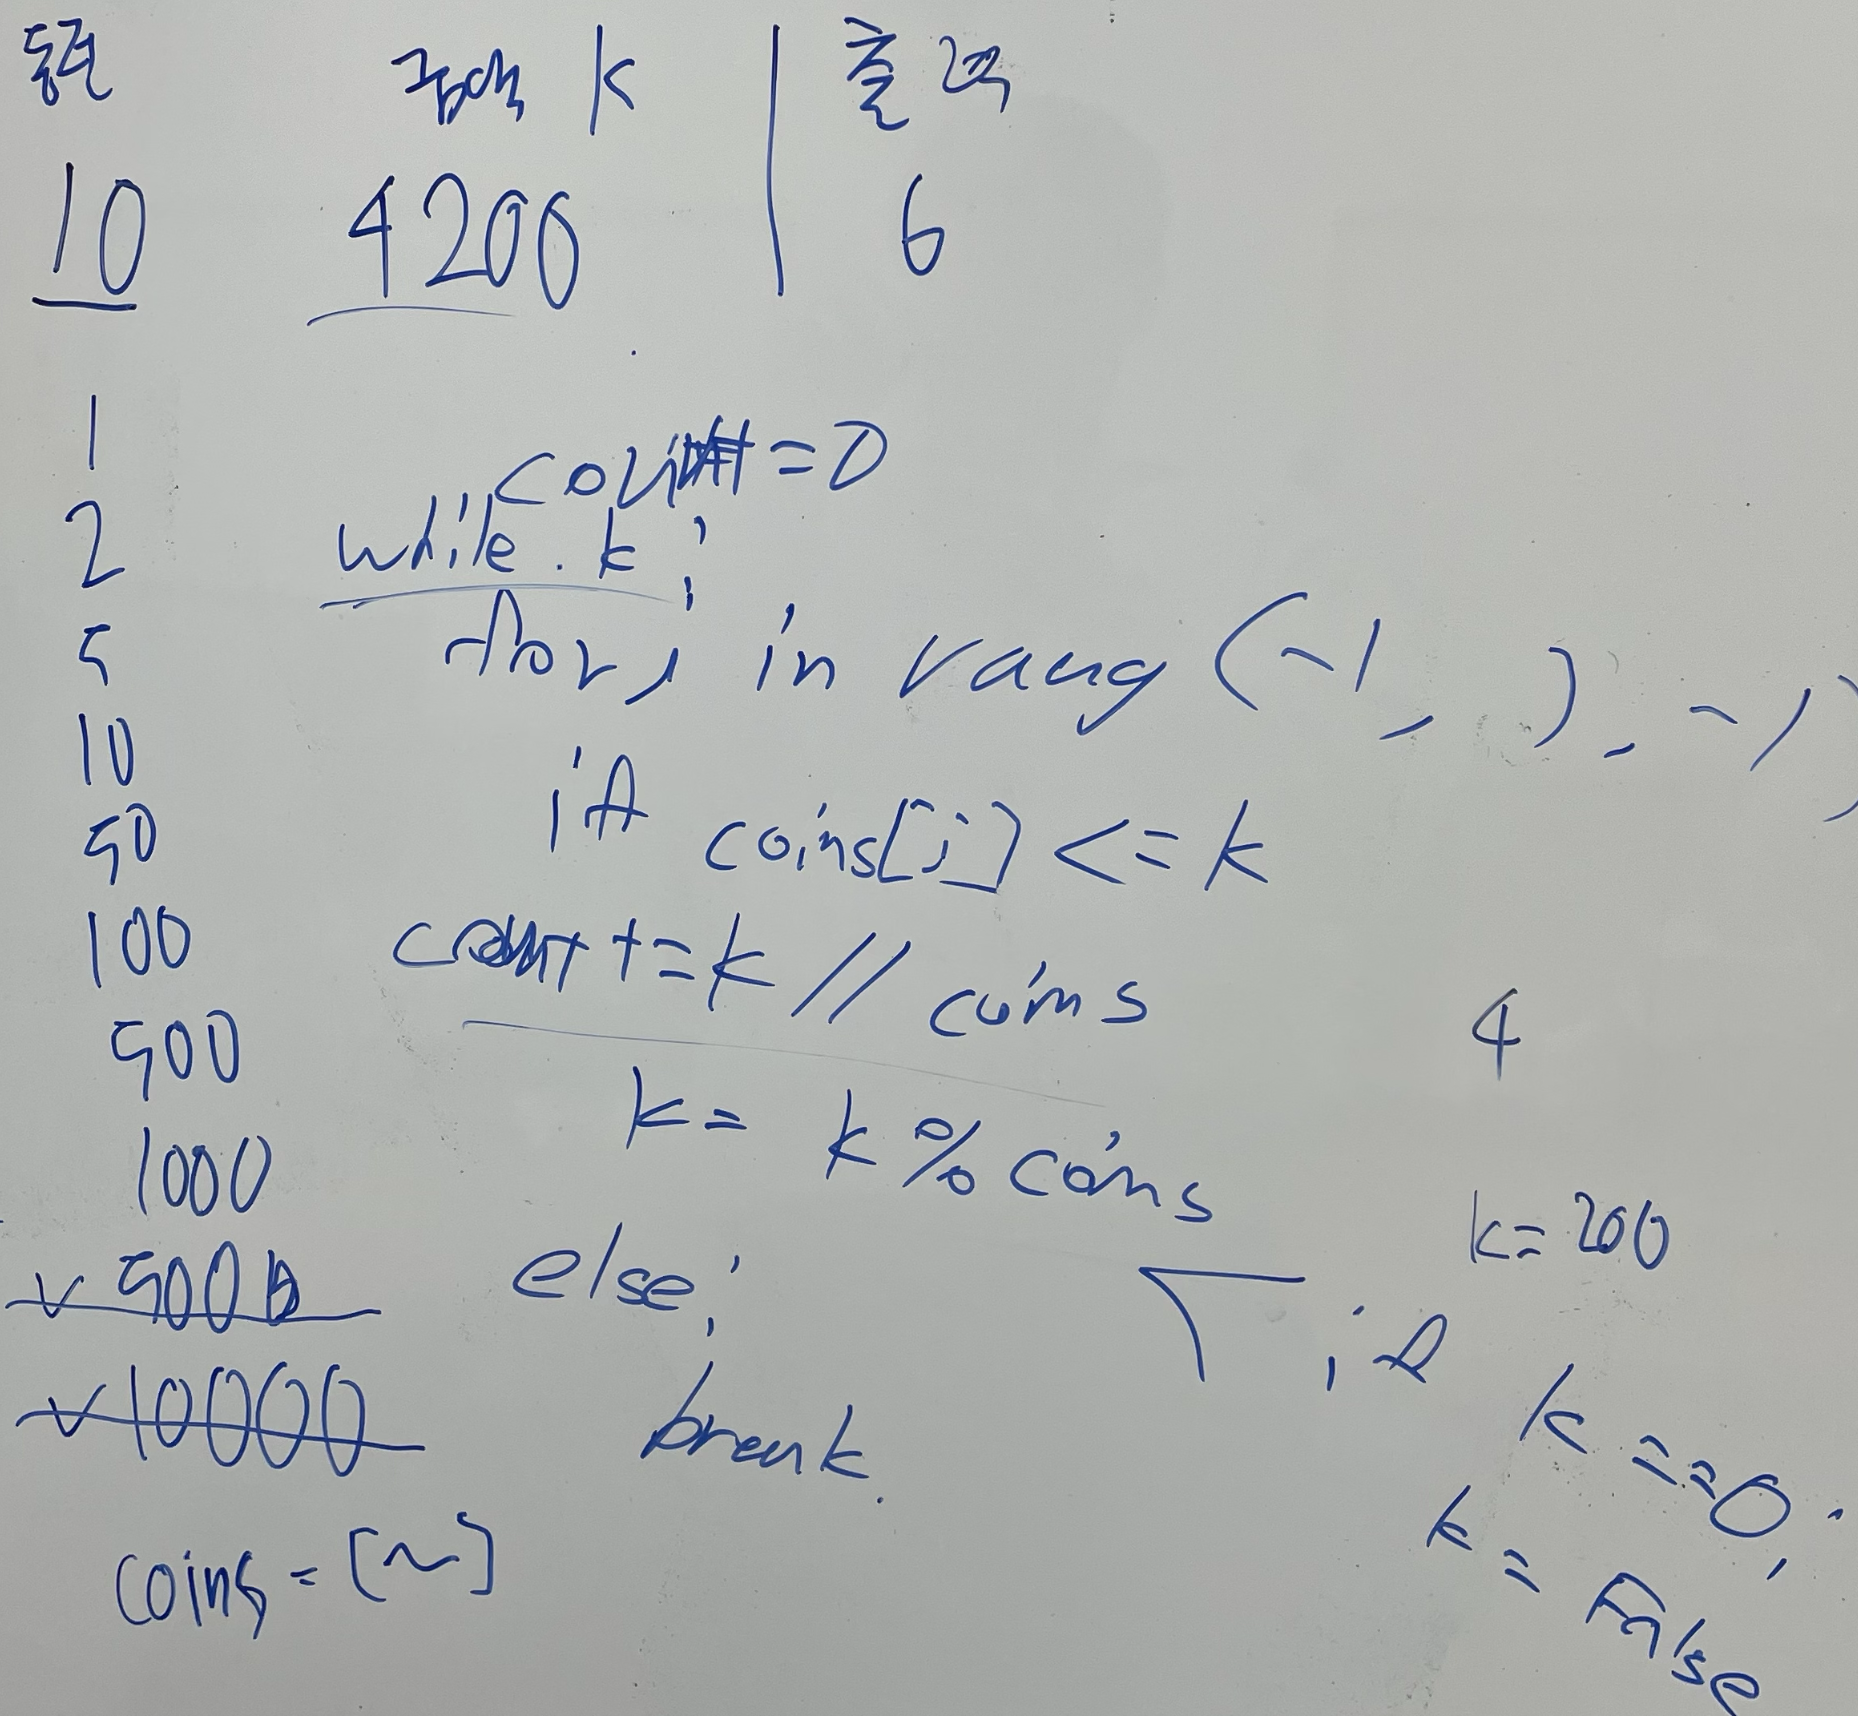 동전 금액 k 출력
10 4200 6
1
2
5
10
50
100
500
1000
5000
10000
coins = [~]
count = 0
while k:
for i in rang (-1, ), -1)
if coins[i] <= k
count += k // coins
k = k % coins
else:
break.
4
k = 200
if
k == 0:
k = False